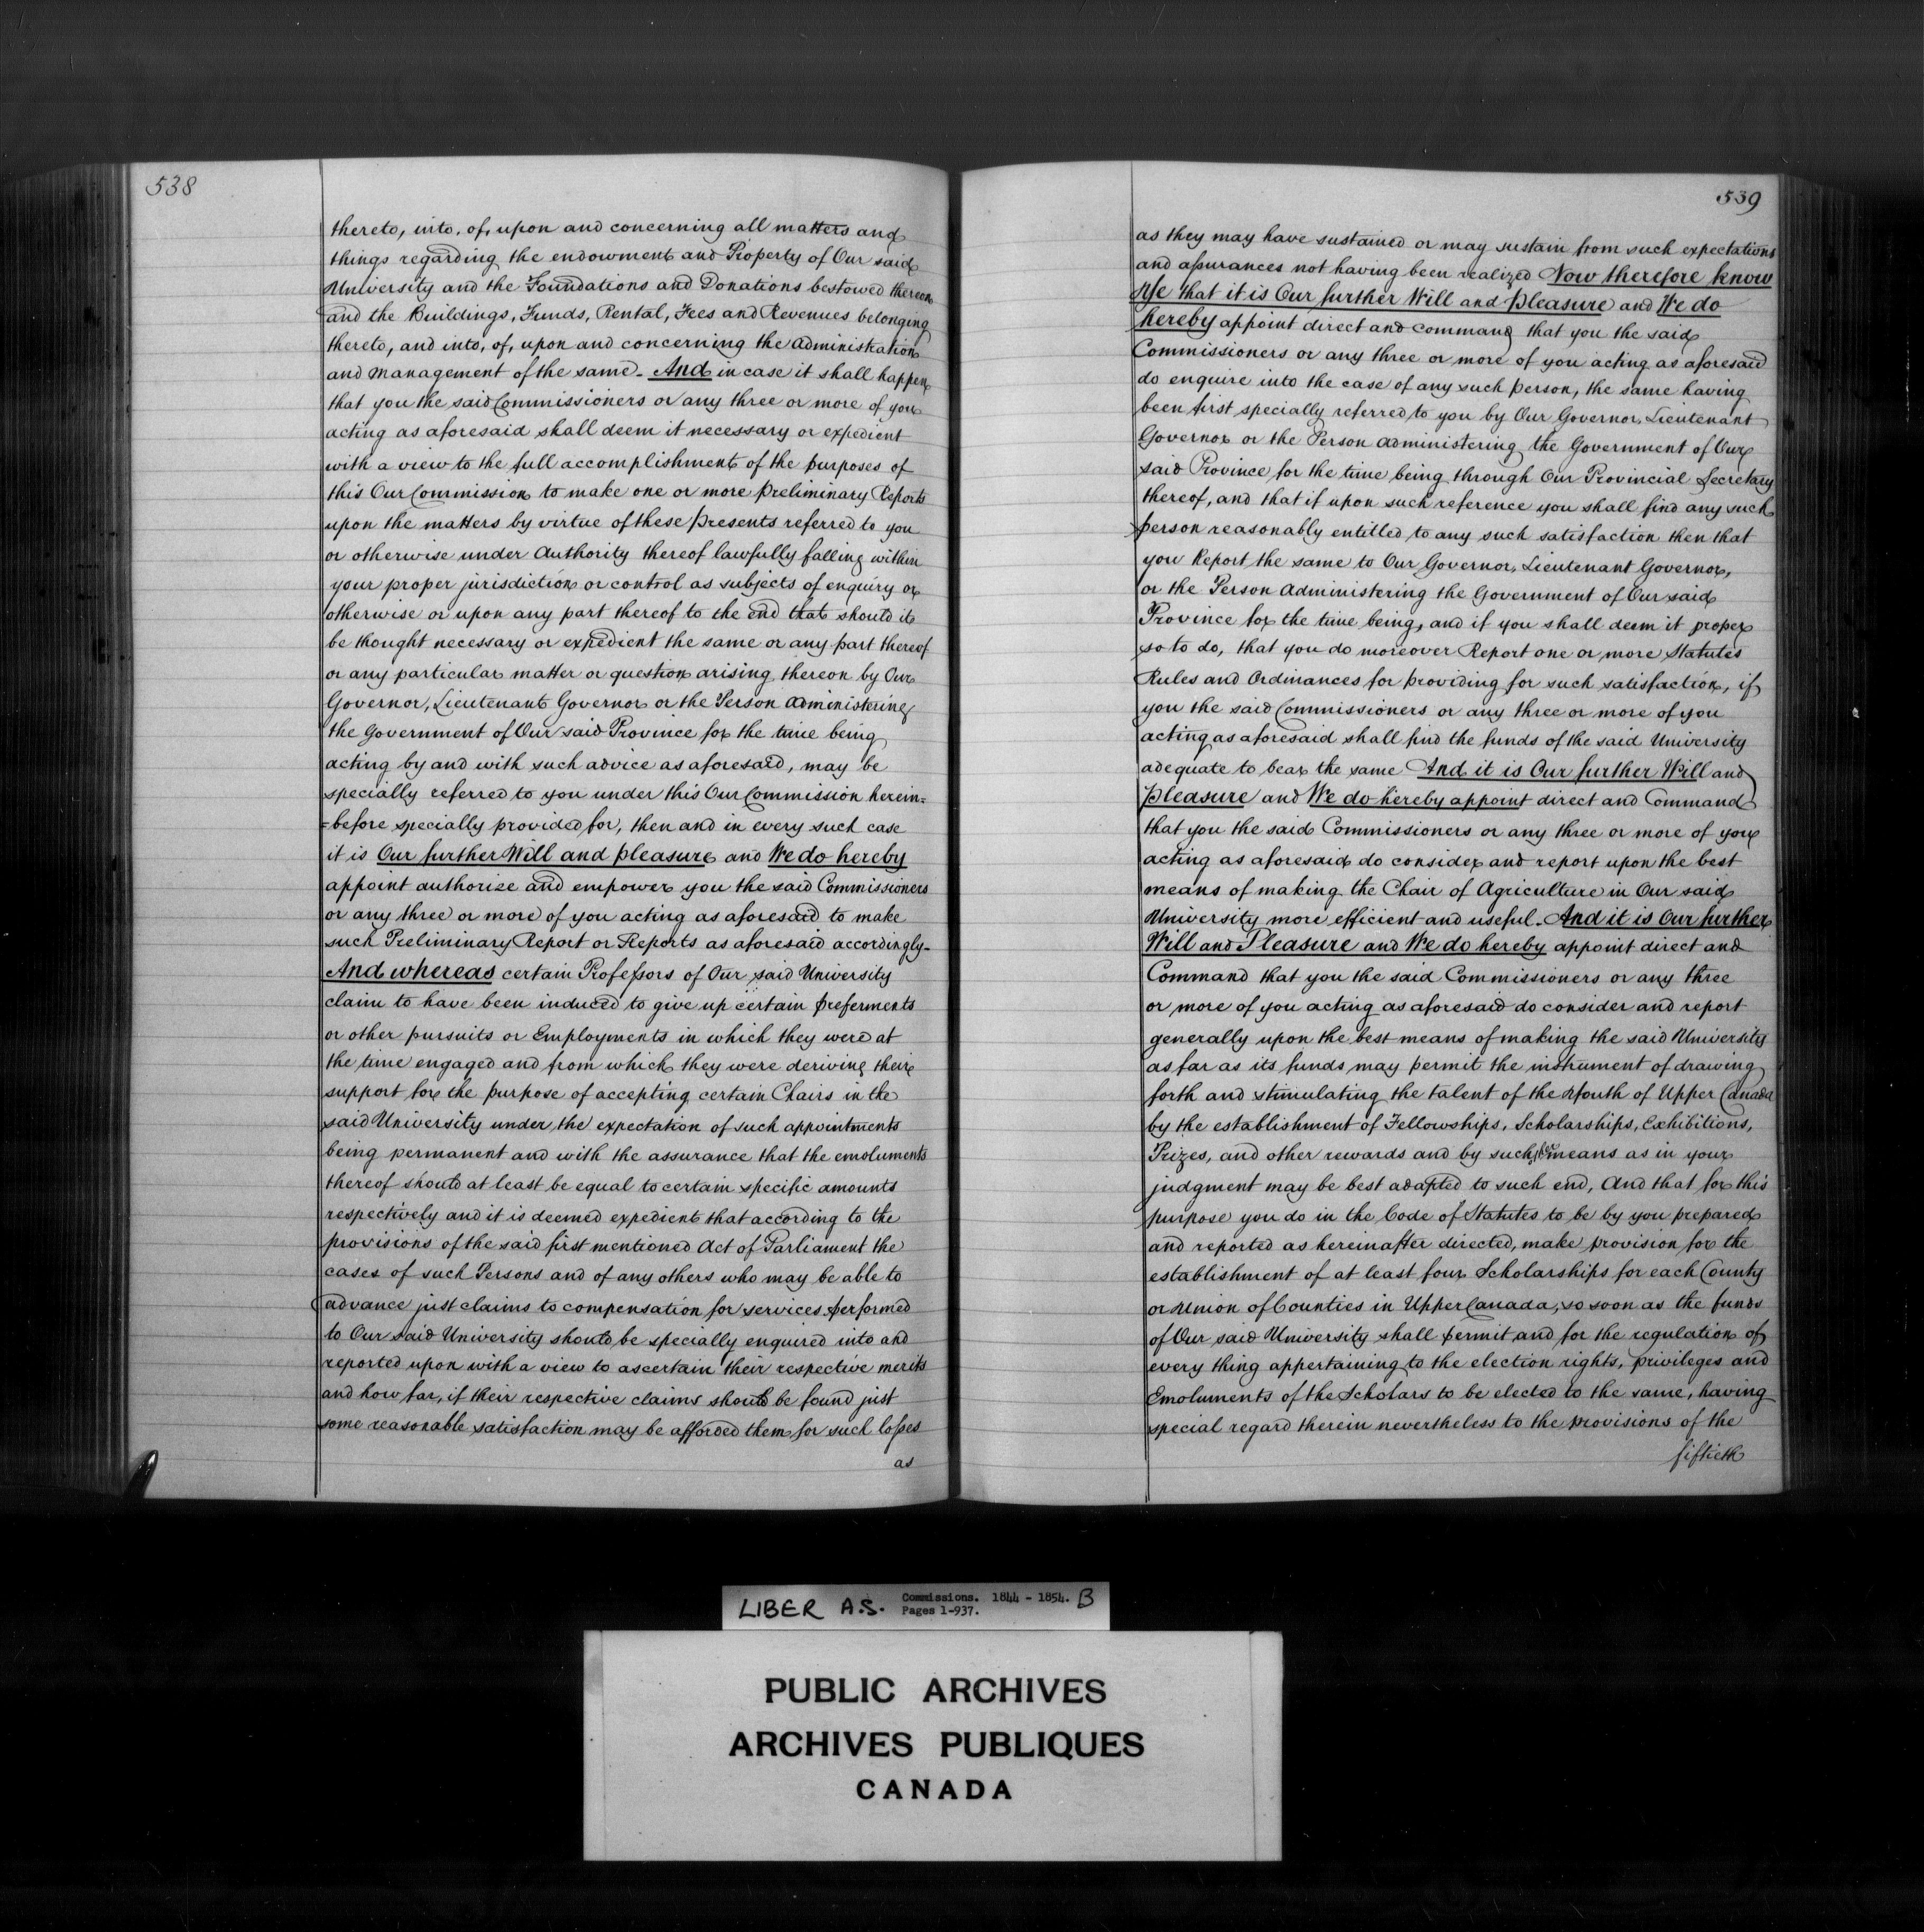 538
thereto, into, of, upon and concerning all matters and
things regarding the endowment and Property of Our said
University and the Foundations and Donations bestowed thereon
and the Buildings, Funds, Rental, Fees and Revenues belonging
thereto, and into, of, upon and concerning the administration
and management of the same. And in case it shall happen
that you the said Commissioners or any three or more of you
acting as aforesaid shall deem it necessary or expedient
with a view to the full accomplishment of the purposes of
this Our Commission to make one or more preliminary Reports
upon the matters by virtue of these presents referred to you
or otherwise under authority thereof lawfully falling within
your proper jurisdiction or control as subjects of enquiry or
otherwise or upon any part thereof to the end that should it
be thought necessary or expedient the same or any part thereof
or any particular matter or question arising thereon by Our
Governor, Lieutenant Governor or the Person administering
the Government of Our said Province for the time being
acting by and with such advice as aforesaid, may be
specially referred to you under this Our Commission herein=
=before specially provided for, then and in every such case
it is Our further Will and pleasure and We do hereby
appoint authorise and empower you the said Commissioners
or any three or more of you acting as aforesaid to make
such Preliminary Report or Reports as aforesaid accordingly-
And whereas certain Professors of Our said University
claim to have been induced to give up certain preferments
or other pursuits or Employments in which they were at
the time engaged and from which they were deriving their
support for the purpose of accepting certain Chairs in the
said University under the expectation of such appointments
being permanent and with the assurance that the emoluments
thereof should at least be equal to certain specific amounts
respectively and it is deemed expedient that according to the
provisions of the said first mentioned Act of Parliament the
cases of such Persons and of any others who may be able to
advance just claims to compensation for services performed
to Our said University should be specially enquired into and
reported upon with a view to ascertain their respective merits
and how far, if their respective claims should be found just
some reasonable satisfaction may be afforded them for such losses
as
539
as they may have sustained or may sustain from such expectations
and assurances not having been realized Now therefore know
Ye that it is Our further Will and pleasure and We do
hereby appoint direct and command that you the said
Commissioners or any three or more of you acting as aforesaid
do enquire into the case of any such person, the same having
been first specially referred to you by Our Governor, Lieutenant
Governor or the Person administering the Government of Our
said Province for the time being through Our Provincial Secretary
thereof, and that if upon such reference you shall find any such
person reasonably entitled to any such satisfaction then that
you Report the same to Our Governor, Lieutenant Governor,
or the Person administering the Government of Our said
Province for the time being, and if you shall deem it proper
so to do, that you do moreover Report one or more Statutes
Rules and Ordinances for providing for such satisfaction, if
you the said Commissioners or any three or more of you
acting as aforesaid shall find the funds of the said University
adequate to bear the same And it is Our further Will and
pleasure and We do hereby appoint direct and Command
that you the said Commissioners or any three or more of you
acting as aforesaid do consider and report upon the best
means of making the Chair of Agriculture in Our said
University more efficient and useful. And it is Our further
Will and Pleasure and We do hereby appoint direct and
Command that you the said Commissioners or any three
or more of you acting as aforesaid do consider and report
generally upon the best means of making the said University
as far as its funds may permit the instrument of drawing
forth and stimulating the talent of the Youth of Upper Canada
by the establishment of Fellowships, Scholarships, Exhibitions,
Prizes, and other rewards and by such means as in your
judgment may be best adapted to such end, and that for this
purpose you do in the Code of Statutes to be by you prepared
and reported as hereinafter directed, make provision for the
establishment of at least four Scholarships for each County
or Union of Counties in Upper Canada, so soon as the funds
of Our said University shall permit and for the regulation of
every thing appertaining to the election rights, privileges and
Emoluments of the Scholars to be elected to the same, having
special regard therein nevertheless to the provisions of the
fiftieth
LIBER A.S. Commissions. 1844 - 1854. B
Pages 1-937.
PUBLIC ARCHIVES
ARCHIVES PUBLIQUES
CANADA